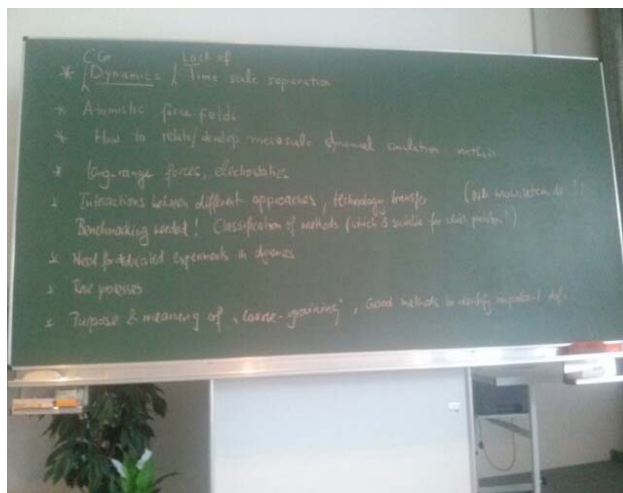 CG Lack of
* Dynamics / Time scale separation
* Atomistic force fields
* How to relate/develop mesoscale dynamical simulation methods
* long-range forces, electrostatics
* Interactions between different approaches, technology transfer
Benchmarking needed! Classification of methods (which is suitable for which problem?)
* Need for dedicated experiments in dynamics
* Rare processes
* Purpose & meaning of "coarse-graining", Good methods to identify important dof.